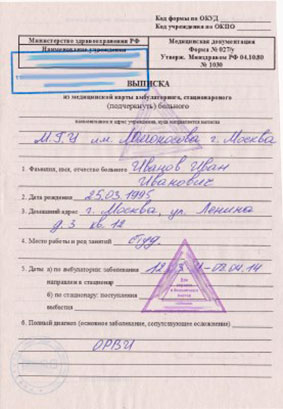 Код формы по ОКУД
Код учреждения по ОКПО
Министерство здравоохранения РФ
Наименование учреждения
Медицинская документация
Форма № 027/у
Утверж. Минздравом РФ 04.10.80
№ 1030
ВЫПИСКА
из медицинской карты амбулаторного, стационарного
(подчеркнуть) больного
наименование и адрес учреждения, куда направляется выписка
М.Г.У им. Ломоносова г. Москва
1. Фамилия, имя, отчество больного Иванов Иван
Иванович
2. Дата рождения 25.03.1995
3. Домашний адрес г. Москва, ул. Ленина
д. 3 кв. 12
4. Место работы и род занятий студ.
5. Даты: а) по амбулатории: заболевания
-02.04.14
направлен в стационар
б) по стационару: поступления
выбытия
6. Полный диагноз (основное заболевание, сопутствующее осложнения)
ОРВИ